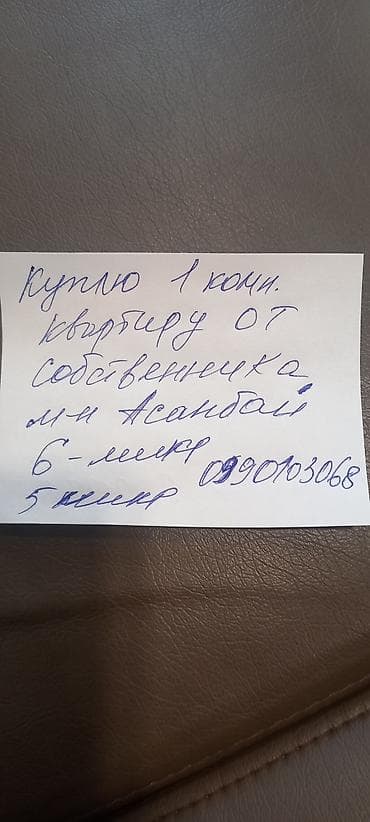 Куплю 1 комн.
квартиру от
собственника
м-н Асанбай
6-микр
5 микр